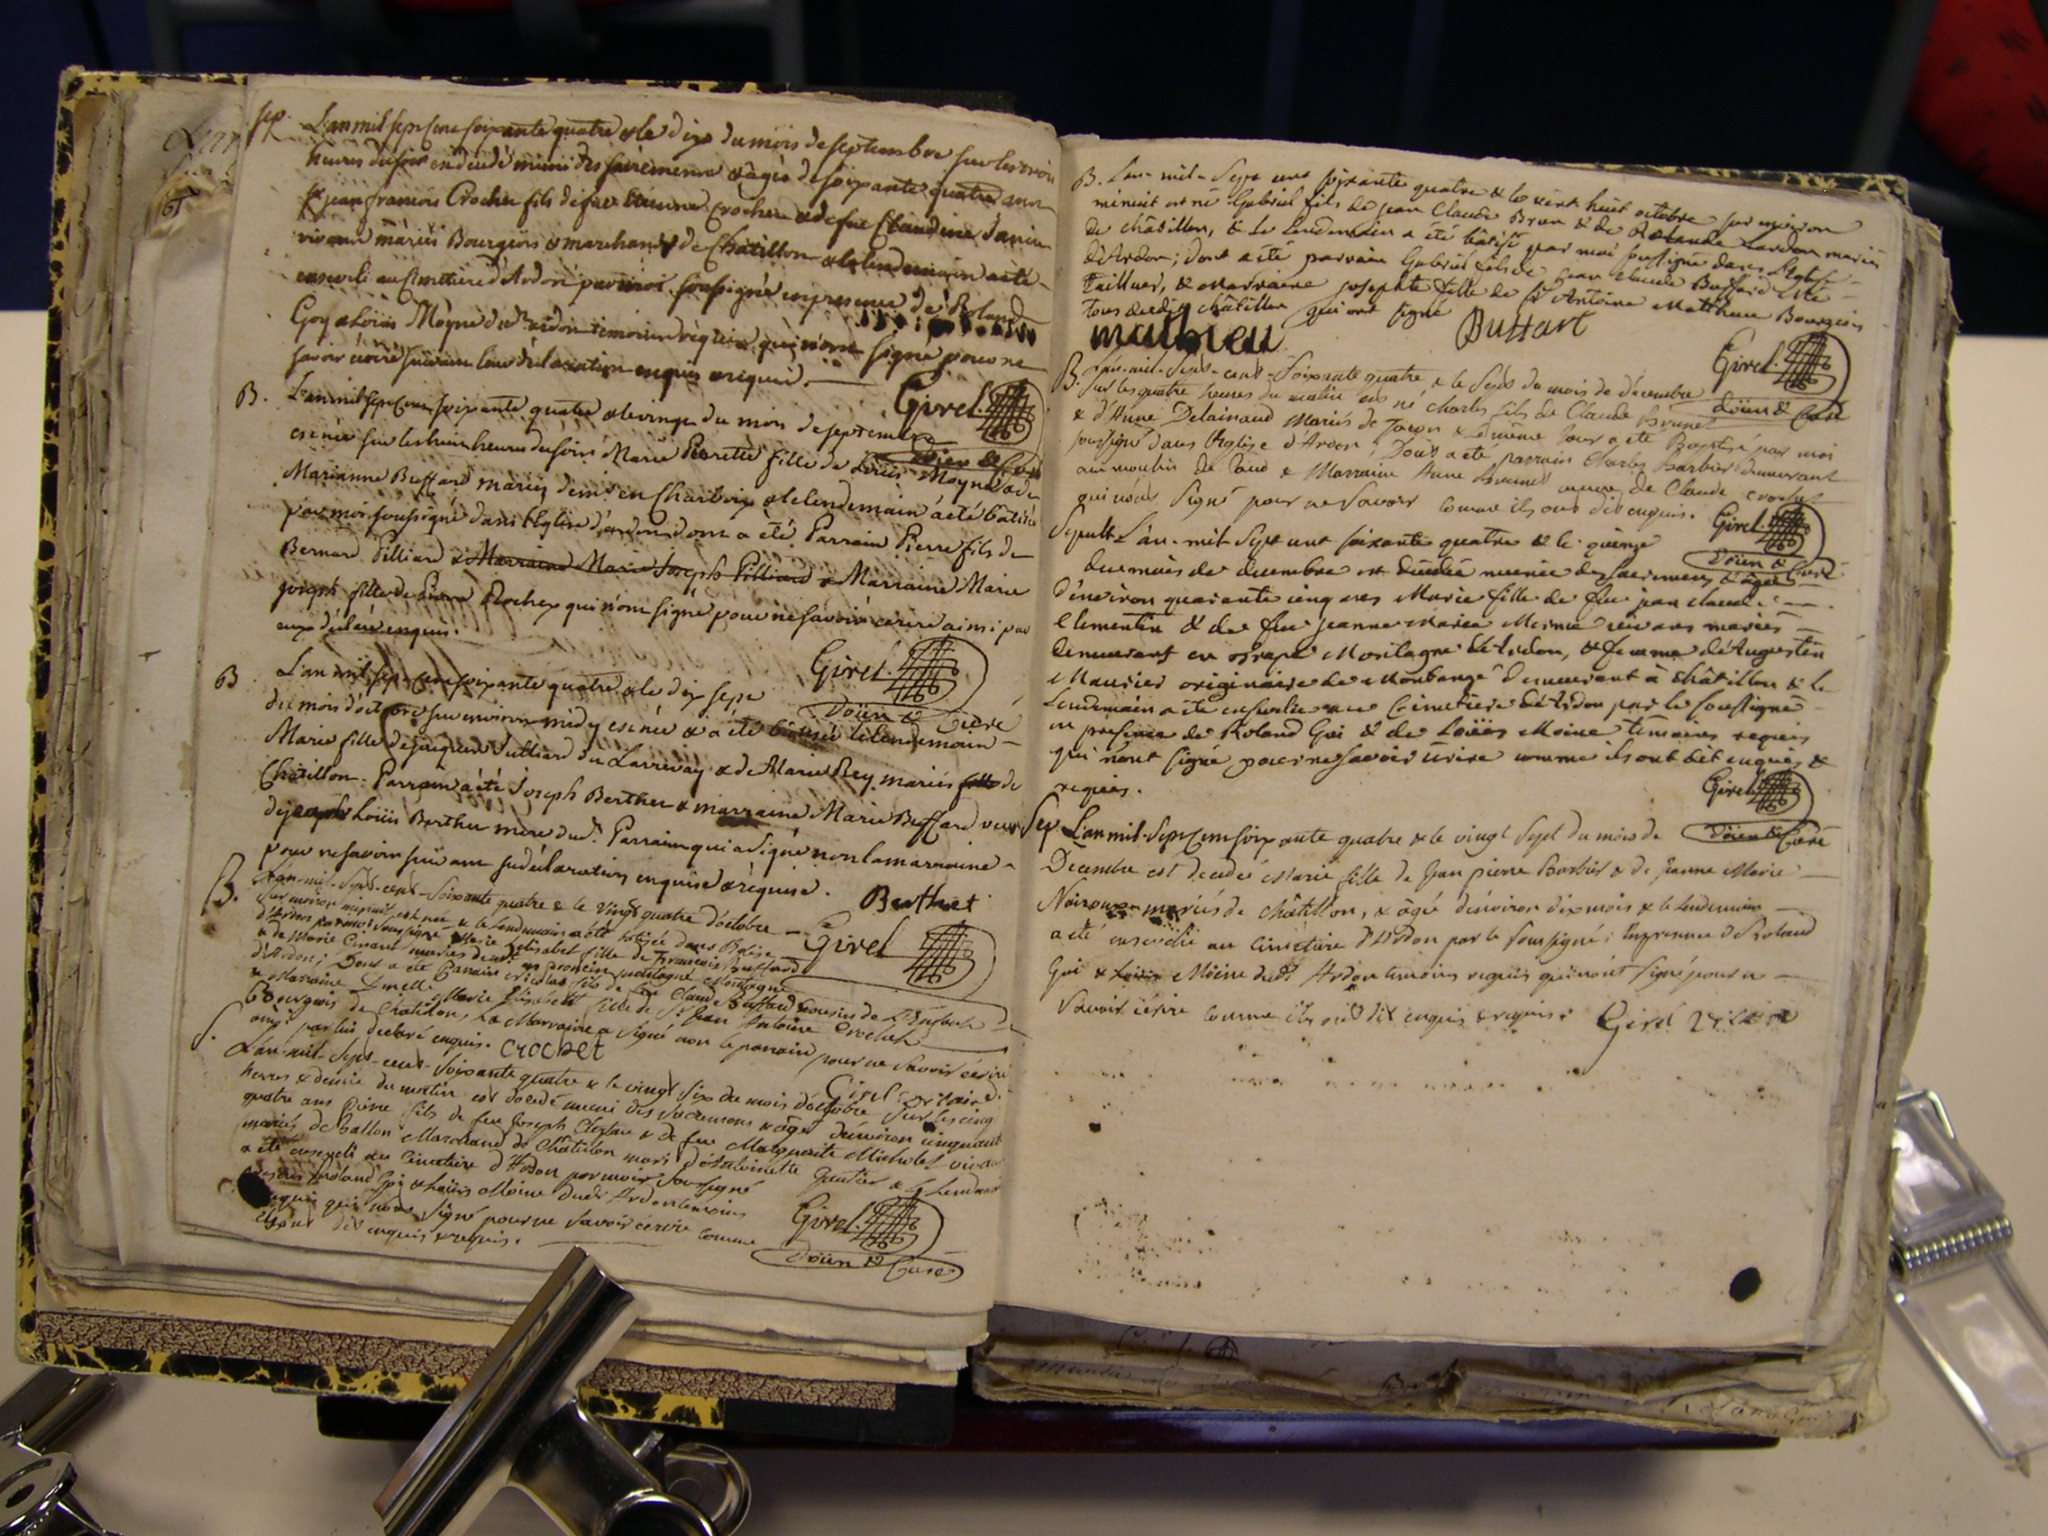 Sep. L'an mil sept cent soixante quatre & le dix du mois de septembre sur les trois
heures du soir est decedé muni des sacrements & agé de soixante quatre ans
jean françois Crochet fils de feu Etienne Crochet & de feue Claudine Janin
vivant mariés Bourgeois & marchand de Châtillon & le lendemain a été
enseveli au cimetiere d'Ardon par moi soussigné en presence de Roland
Goy & Loüis Moÿne dud. Ardon temoins requis qui n'ont signé pour ne
savoir écrire suivant leur déclaration enquis & requis.
Girel
Doïen & Curé
B. L'an mil sept cent soixante quatre & le vingt du mois de septembre
est née sur les huit heures du soir Marie Pierrette fille de Loüis Moyne & de
Marianne Buffard mariés dem. en Charboix & le lendemain a été batisée
par moi soussigné dans l'Eglise d'ardon dont a été Parrain Pierre fils de
Bernard Pilliard & Marraine Marie Joseph Pilliard & Marraine Marie
joseph fille de Pierre Rochex qui n'ont signé pour ne savoir écrire ainsi par
eux déclaré enquis.
Girel
Doïen & Curé
B. L'an mil sept cent soixante quatre & le dix sept
du mois d'octobre sur environ midy est née & a été batisée le lendemain
Marie fille de jacques Julliard du Larrivay & de Marie Rey mariés de
Châtillon. Parrain a été Joseph Berthet & marraine Marie Buffard veuve
de joseph Loüis Berthet mere dud. Parrain qui a signé non la marraine
pour ne savoir suivant sa déclaration enquise & requise.
Berthet
Girel
B. L'an-mil-Sept-cent-Soixante quatre & le vingt quatre d'octobre
sur environ minuit est née & le lendemain a été batisée dans l'Eglise
d'Ardon par moi soussigné Marie Elisabet fille de François Buffard
& de Marie mariés
d'Ardon; Dont a été Parrain Nicolas fils de feu Claude Buffard cousin de
& Marraine Dmelle Marie Elisabeth fille de Sr Jean Antoine Crochet
Bourgeois de Châtillon, La Marraine a signé non le parrain pour ne savoir écrire
ainsi par lui declaré enquis. Crochet
Girel
S. L'an-mil-Sept-cent-Soixante quatre & le vingt six du mois d'octobre sur les cinq
heures & demie du matin est decedé muni des sacremens & agé d'environ cinquante
quatre ans Pierre fils de feu Joseph & de feue Marguerite Micholet vivant
mariés de ballon Marchand de Châtillon mari d'Antoinette Gautier & le lendemain
a été enseveli au cimetiere d'Ardon par moi soussigné
Roland Goi & Loüis Moine dudt Ardon temoins
requis qui n'ont signé pour ne savoir écrire comme
ils ont dit enquis & requis.
Girel
Doïen & Curé
B. L'an-mil-Sept cent soixante quatre & le vint huit octobre sur environ
minuit est né Gabriel fils de jean Claude Brun & de Rolande Lardon mariés
de châtillon, & le lendemain a été bâtisé par moi soussigné dans l'Eglise
d'Ardon; dont a été parrain Gabriel fils de jean claude Buffard Me
tailleur, & Marraine josephte fille de Sr Antoine Matthieu Bourgeois
tous dudit châtillon qui ont signé
mathieu
Buffart
Girel
Doïen & Curé
B. L'an-mil-Sept-cent-Soixante quatre & le Sept du mois de décembre
sur les quatre heures du matin est né charles fils de Claude Brunet
& d'Anne Delainaud Mariés de Tacon & le même Jour a été Baptisé par moi
soussigné dans l'Eglise d'Ardon; Dont a été parrain charles Barbier demeurant
au moulin de & Marraine Anne Brunet veuve de Claude
qui n'ont signé pour ne savoir comme ils ont dit enquis.
Girel
Doïen & Curé
Sepult. L'an-mil Sept cent soixante quatre & le quinze
du mois de décembre est décédée munie des sacremens & agée
d'environ quarante cinq ans Marie fille de feu jean claude
Clementin & de feu jeanne Marie Mermet vivans mariés
demeurant en Montagne d'Ardon, & femme d'Augustin
Maurier originaire de Monbangé demeurant à châtillon & le
Lendemain a été ensevelie au Cimetière d'Ardon par le soussigné
en présence de Roland Goi & de Loüis Moine témoins requis
qui n'ont signé pour ne savoir écrire comme ils ont dit enquis &
requis.
Girel
Doïen & Curé
Sep. L'an mil-Sept Cent soixante quatre & le vingt Sept du mois de
Décembre est decedée Marie fille de Jean pierre Barbier & de Jeanne Marie
mariés de Châtillon, & âgée d'environ dix mois & le lendemain
a été ensevelie au cimetiere d'Ardon par le soussigné; En presence de Roland
Goi & Loüis Moine dudt Ardon temoins requis qui n'ont signé pour ne
savoir écrire comme ils ont dit enquis & requis.
Girel